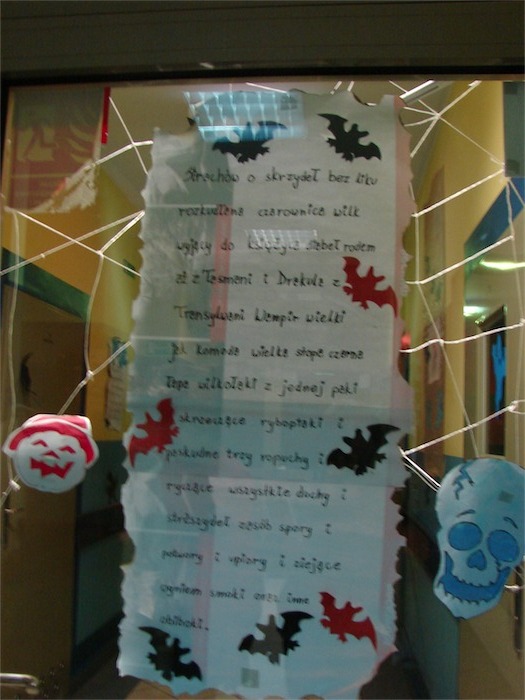 Strachów o skrzydeł bez liku
rozkudłana czarownica wilk
wyjący do księżyca diabeł rodem
aż z Tasmani i Drakula z
Transylwani Wampir wielki
jak komoda wielka stopa czarna
łapa wilkołaki z jednej paki
skrowczące rybopłaki i
paskudne trzy ropuchy i
ryczące wszystkie duchy i
straszydeł zasób spory i
potwory i upiory i ziejące
ogniem smoki oraz inne
obiboki.